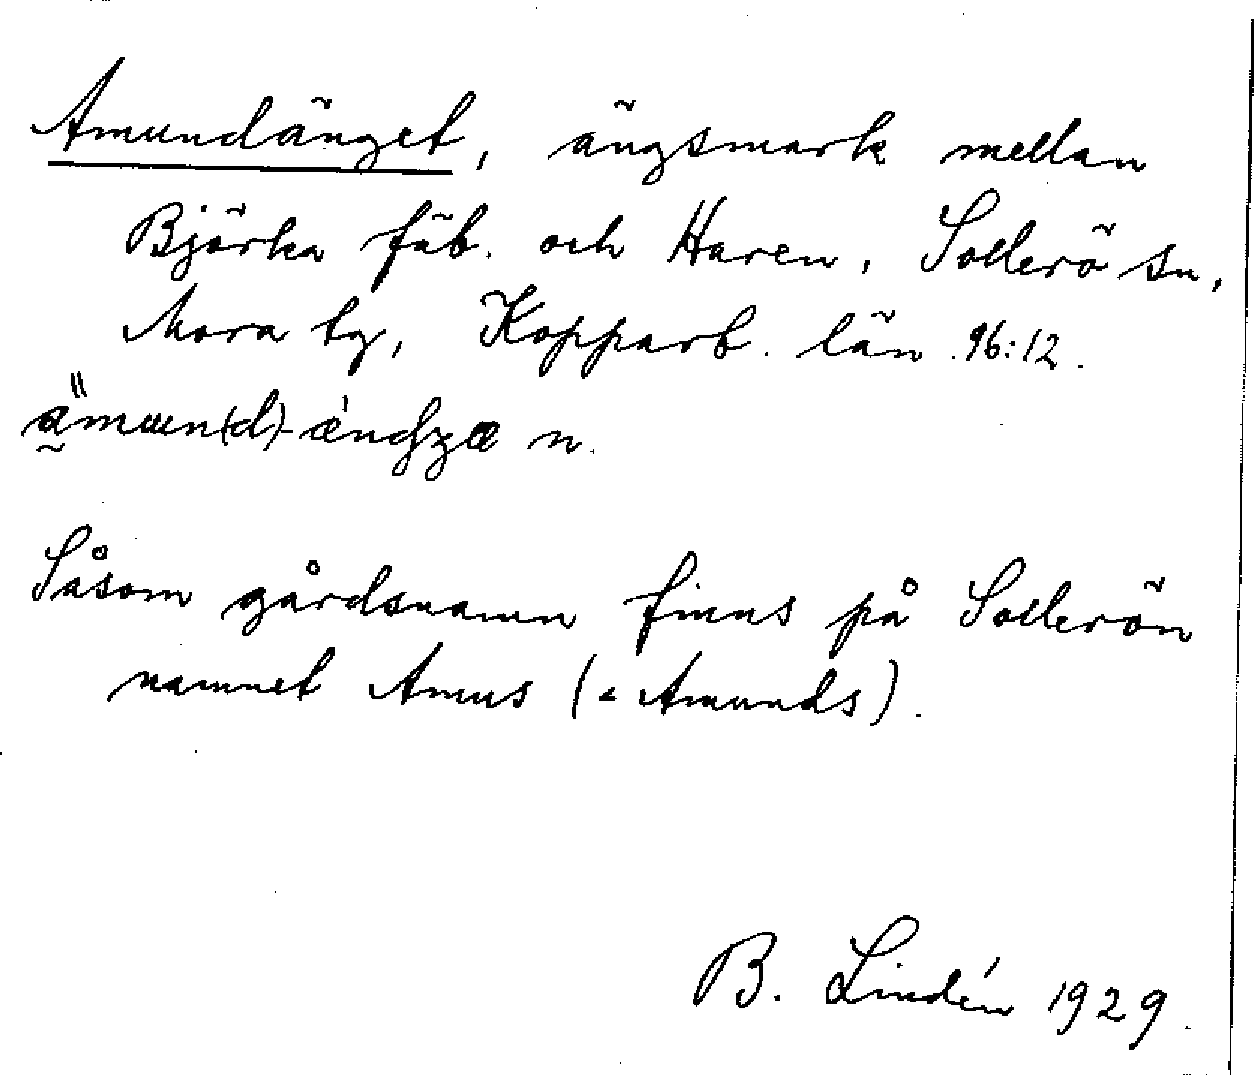 Amundänget, ängsmark mellan
Björka fäb. och Haren, Sollerö sn,
Mora tg, Kopparb. län 96:12.
n.
Såsom gårdsnamn finns på Sollerön
namnet Amus (= Amunds).
B. Lindén 1929.